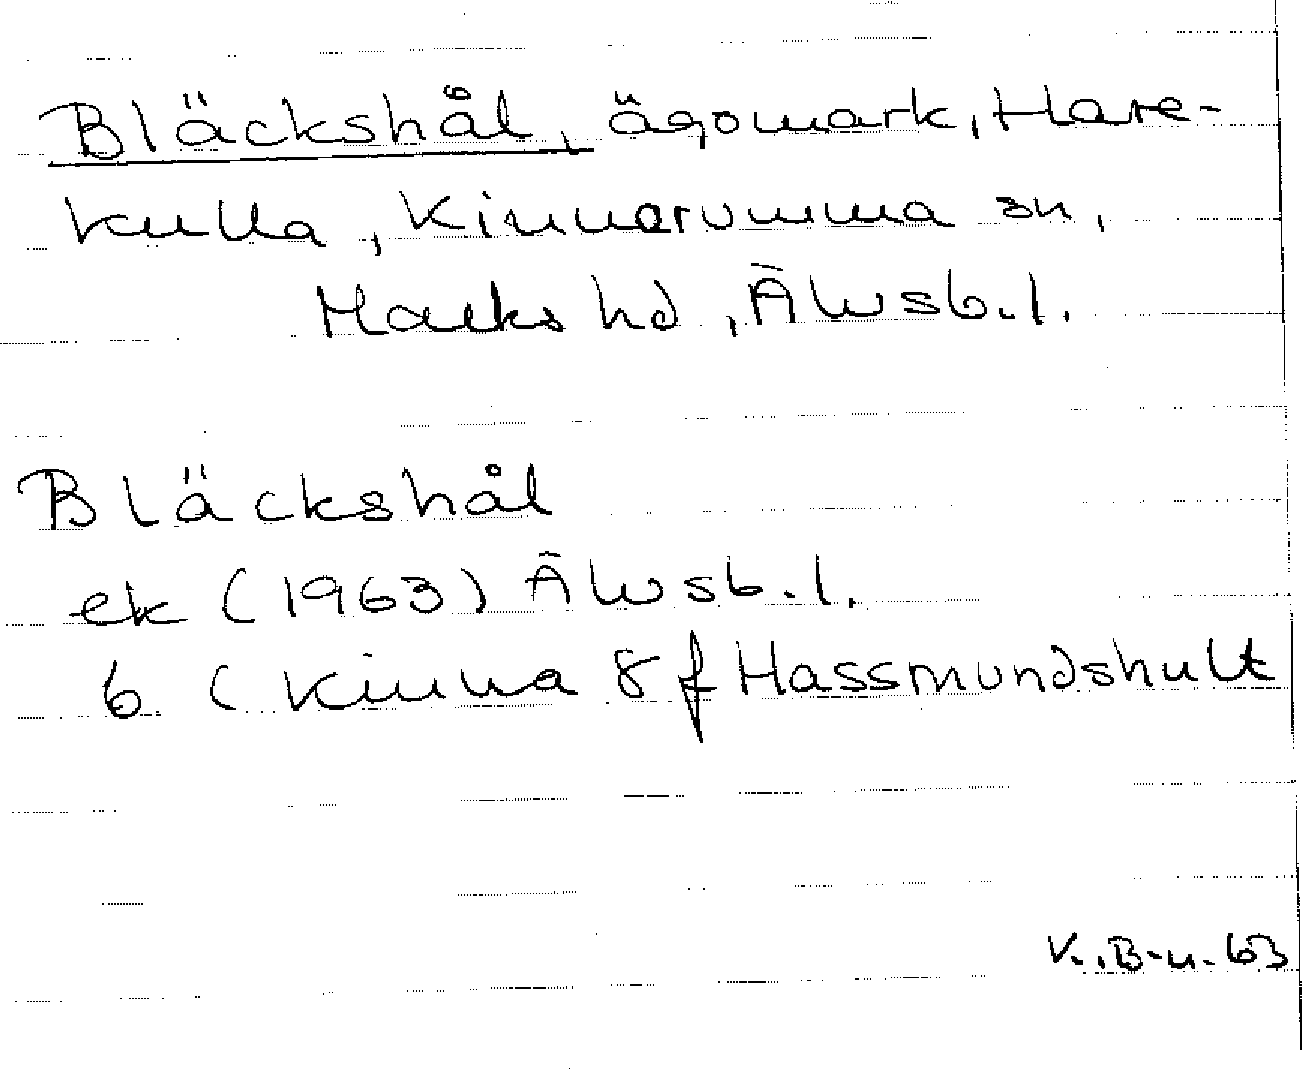 Bläckshål, ägomark, Hare-
kulla, Kinnarumma sn,
Marks hd, Älvsb.l.
Bläckshål
ek (1963) Älvsb.l.
6 ( Kinna 8 f Hassmundshult
K. B-n. 63